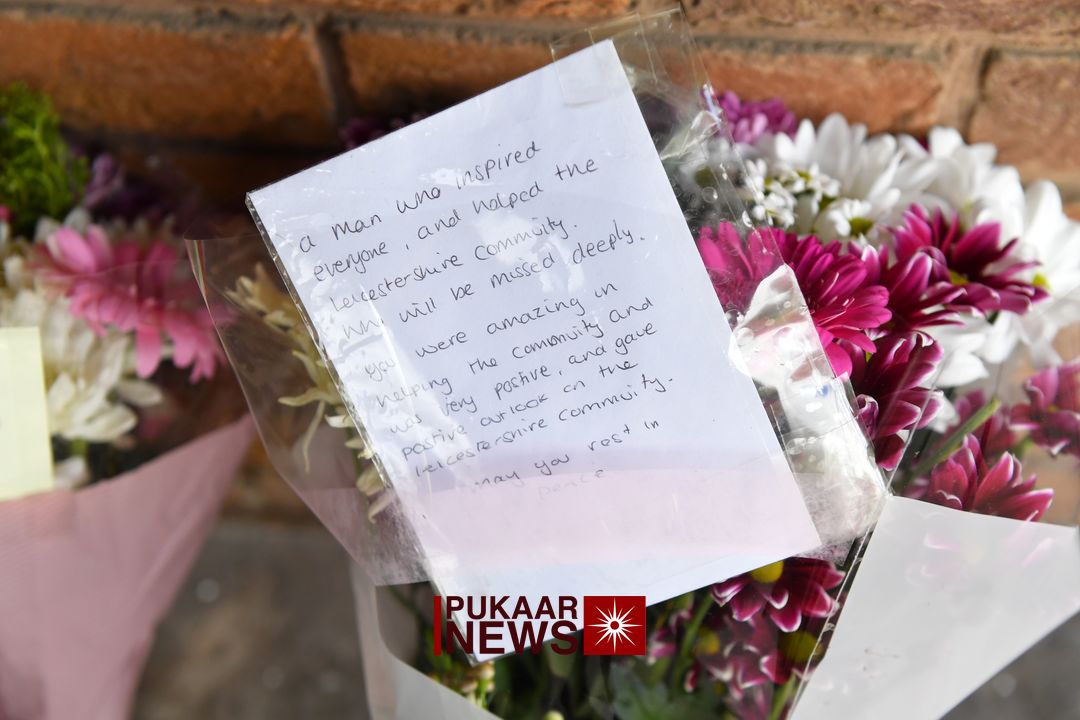 a man who inspired
everyone, and helped the
Leicestershire Commuity.
who will be missed deeply.
you were amazing in
helping the community and
was very postive, and gave
postive outlook on the
Leicestershire Commuity.
may you rest in
peace
PUKAAR
NEWS